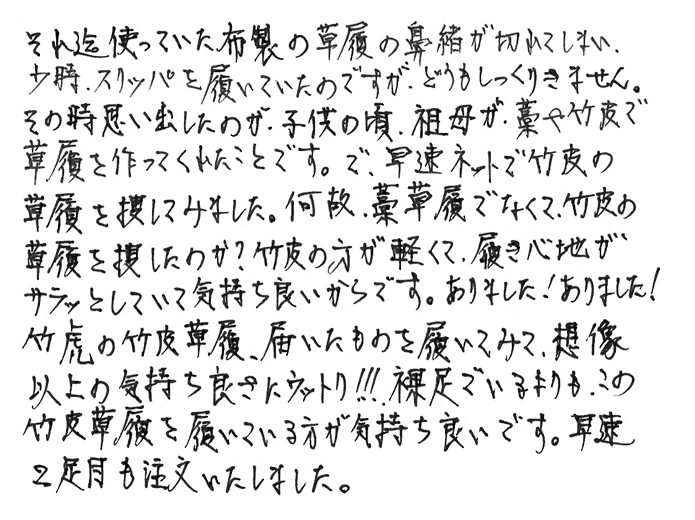 それ迄使っていた布製の草履の鼻緒が切れてしまい、
少時、スリッパを履いていたのですが、どうもしっくりきません。
その時思い出したのが、子供の頃、祖母が、藁や竹皮で
草履を作ってくれたことです。で、早速ネットで竹皮の
草履を捜してみました。何故、藁草履でなくて、竹皮の
草履を捜したのか?竹皮の方が軽くて、履き心地が
サラッとしていて気持ち良いからです。ありました!ありました!
竹虎の竹皮草履、届いたものを履いてみて、想像
以上の気持ち良さにウットリ!!!裸足でいるよりも、この
竹皮草履を履いている方が気持ち良いです。早速
2足目も注文いたしました。